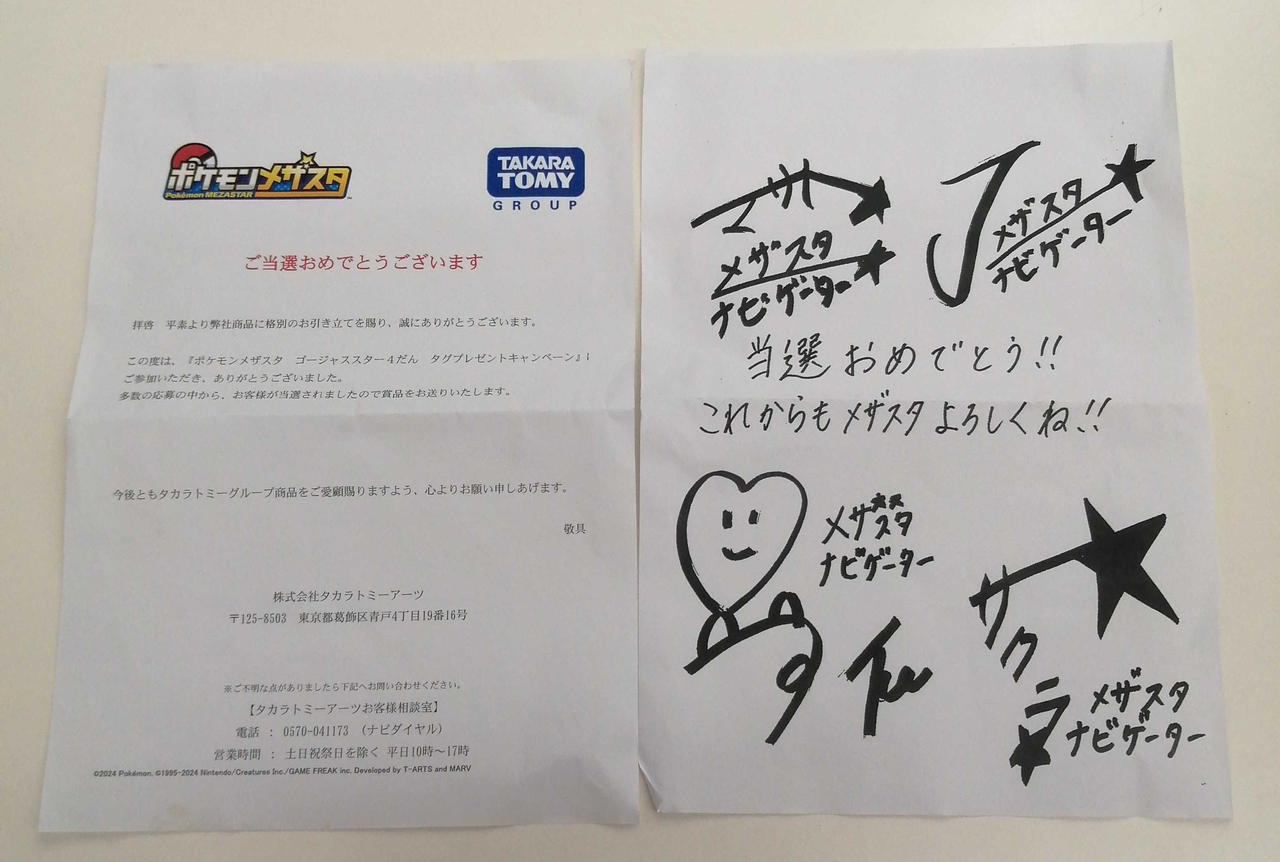 ポケモンメザスタ
Pokémon MEZASTAR
TAKARA
TOMY
GROUP
ご当選おめでとうございます
拝啓 平素より弊社商品に格別のお引き立てを賜り、誠にありがとうございます。
この度は、『ポケモンメザスタ ゴージャススター4だん タグプレゼントキャンペーン』に
ご参加いただき、ありがとうございました。
多数の応募の中から、お客様が当選されましたので賞品をお送りいたします。
今後ともタカラトミーグループ商品をご愛顧賜りますよう、心よりお願い申しあげます。
敬具
株式会社タカラトミーアーツ
〒125-8503 東京都葛飾区青戸4丁目19番16号
※ご不明な点がありましたら下記へお問い合わせください。
【タカラトミーアーツお客様相談室】
電話 : 0570-041173 (ナビダイヤル)
営業時間 : 土日祝祭日を除く 平日10時～17時
©2024 Pokémon. ©1995-2024 Nintendo/Creatures Inc./GAME FREAK inc. Developed by T-ARTS and MARV
メザスタ
ナビゲーター
メザスタ
ナビゲーター
当選おめでとう!!
これからもメザスタよろしくね!!
メザスタ
ナビゲーター
サクラ
メザスタ
ナビゲーター